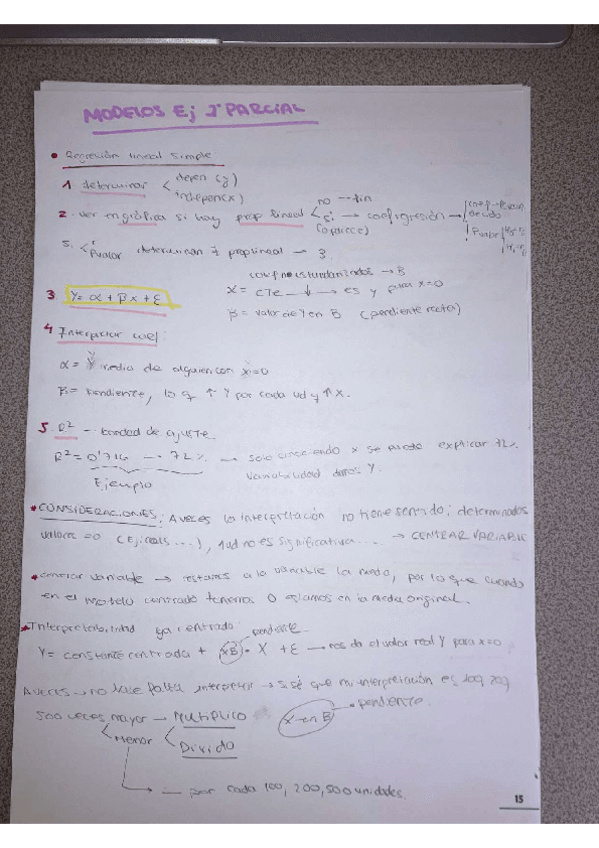 MODELOS Ej 1º PARCIAL
• Regresión lineal simple
1 determinar < depen (y)
indepen (x)
2. ver en gráfica si hay prop lineal < no -- fin
si → coef regresión →
(aparece)
5. < r
Pvalor determinan prop lineal → 3
coef no estandarizados → B
3. Y = α + β x + ε
α = cte → es y para x=0
β = valor de Y en B (pendiente recta)
4 Interpretar coef
α = Y media de alguien con x=0
β = pendiente, lo q ↑ Y por cada ud q ↑ X.
5. R² - bondad de ajuste
R² = 0'716 --- 72% → solo conociendo x se puede explicar 72%
variabilidad Y.
Ejemplo
* CONSIDERACIONES: A veces la interpretación no tiene sentido; determinados
valores =0 ( Ej: ...), 1 ud no es significativa.... → CENTRAR VARIABLE
* centrar variable → restamos a la variable la media, por lo que cuando
en el modelo centrado tenemos 0 estamos en la media original.
* Interpretabilidad ya centrada: pendiente
Y = constante centrada + (xB) · X + ε → nos da el valor real Y para x=0
A veces → no hace falta interpretar → si sé que mi interpretación es 100, 200
500 veces mayor → Multiplico (X → en B) → pendiente
< Menor < Divido
→ — por cada 100, 200, 500 unidades.
15